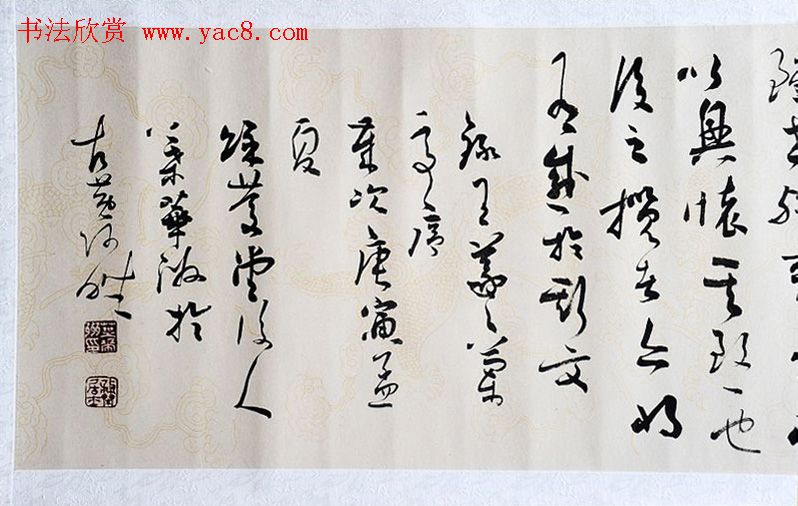 书法欣赏 www.yac8.com
雖世殊事
以興懷其致一也
後之攬者亦將
有感於斯文
錄王羲之蘭
亭序
歲次庚寅孟
夏
堂後人
華於
古